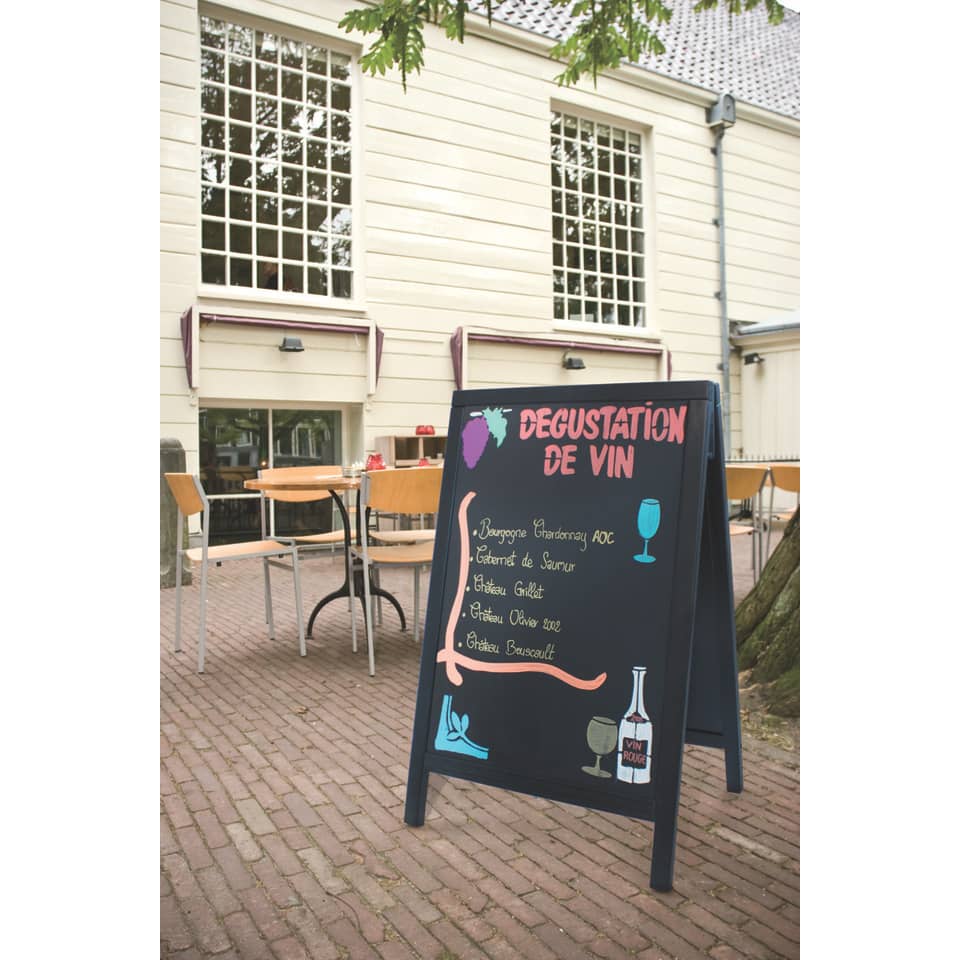 DEGUSTATION
DE VIN
• Bourgogne Chardonnay AOC
• Cabernet de Saumur
• Château Grillet
• Château Olivier 2002
• Château Bouscault
VIN
ROUGE